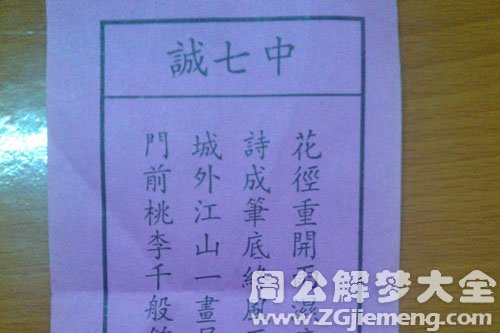 中七誠
花徑重開
詩成筆底
城外江山一畫
門前桃李千般
周公解梦大全
www.ZGjiemeng.com